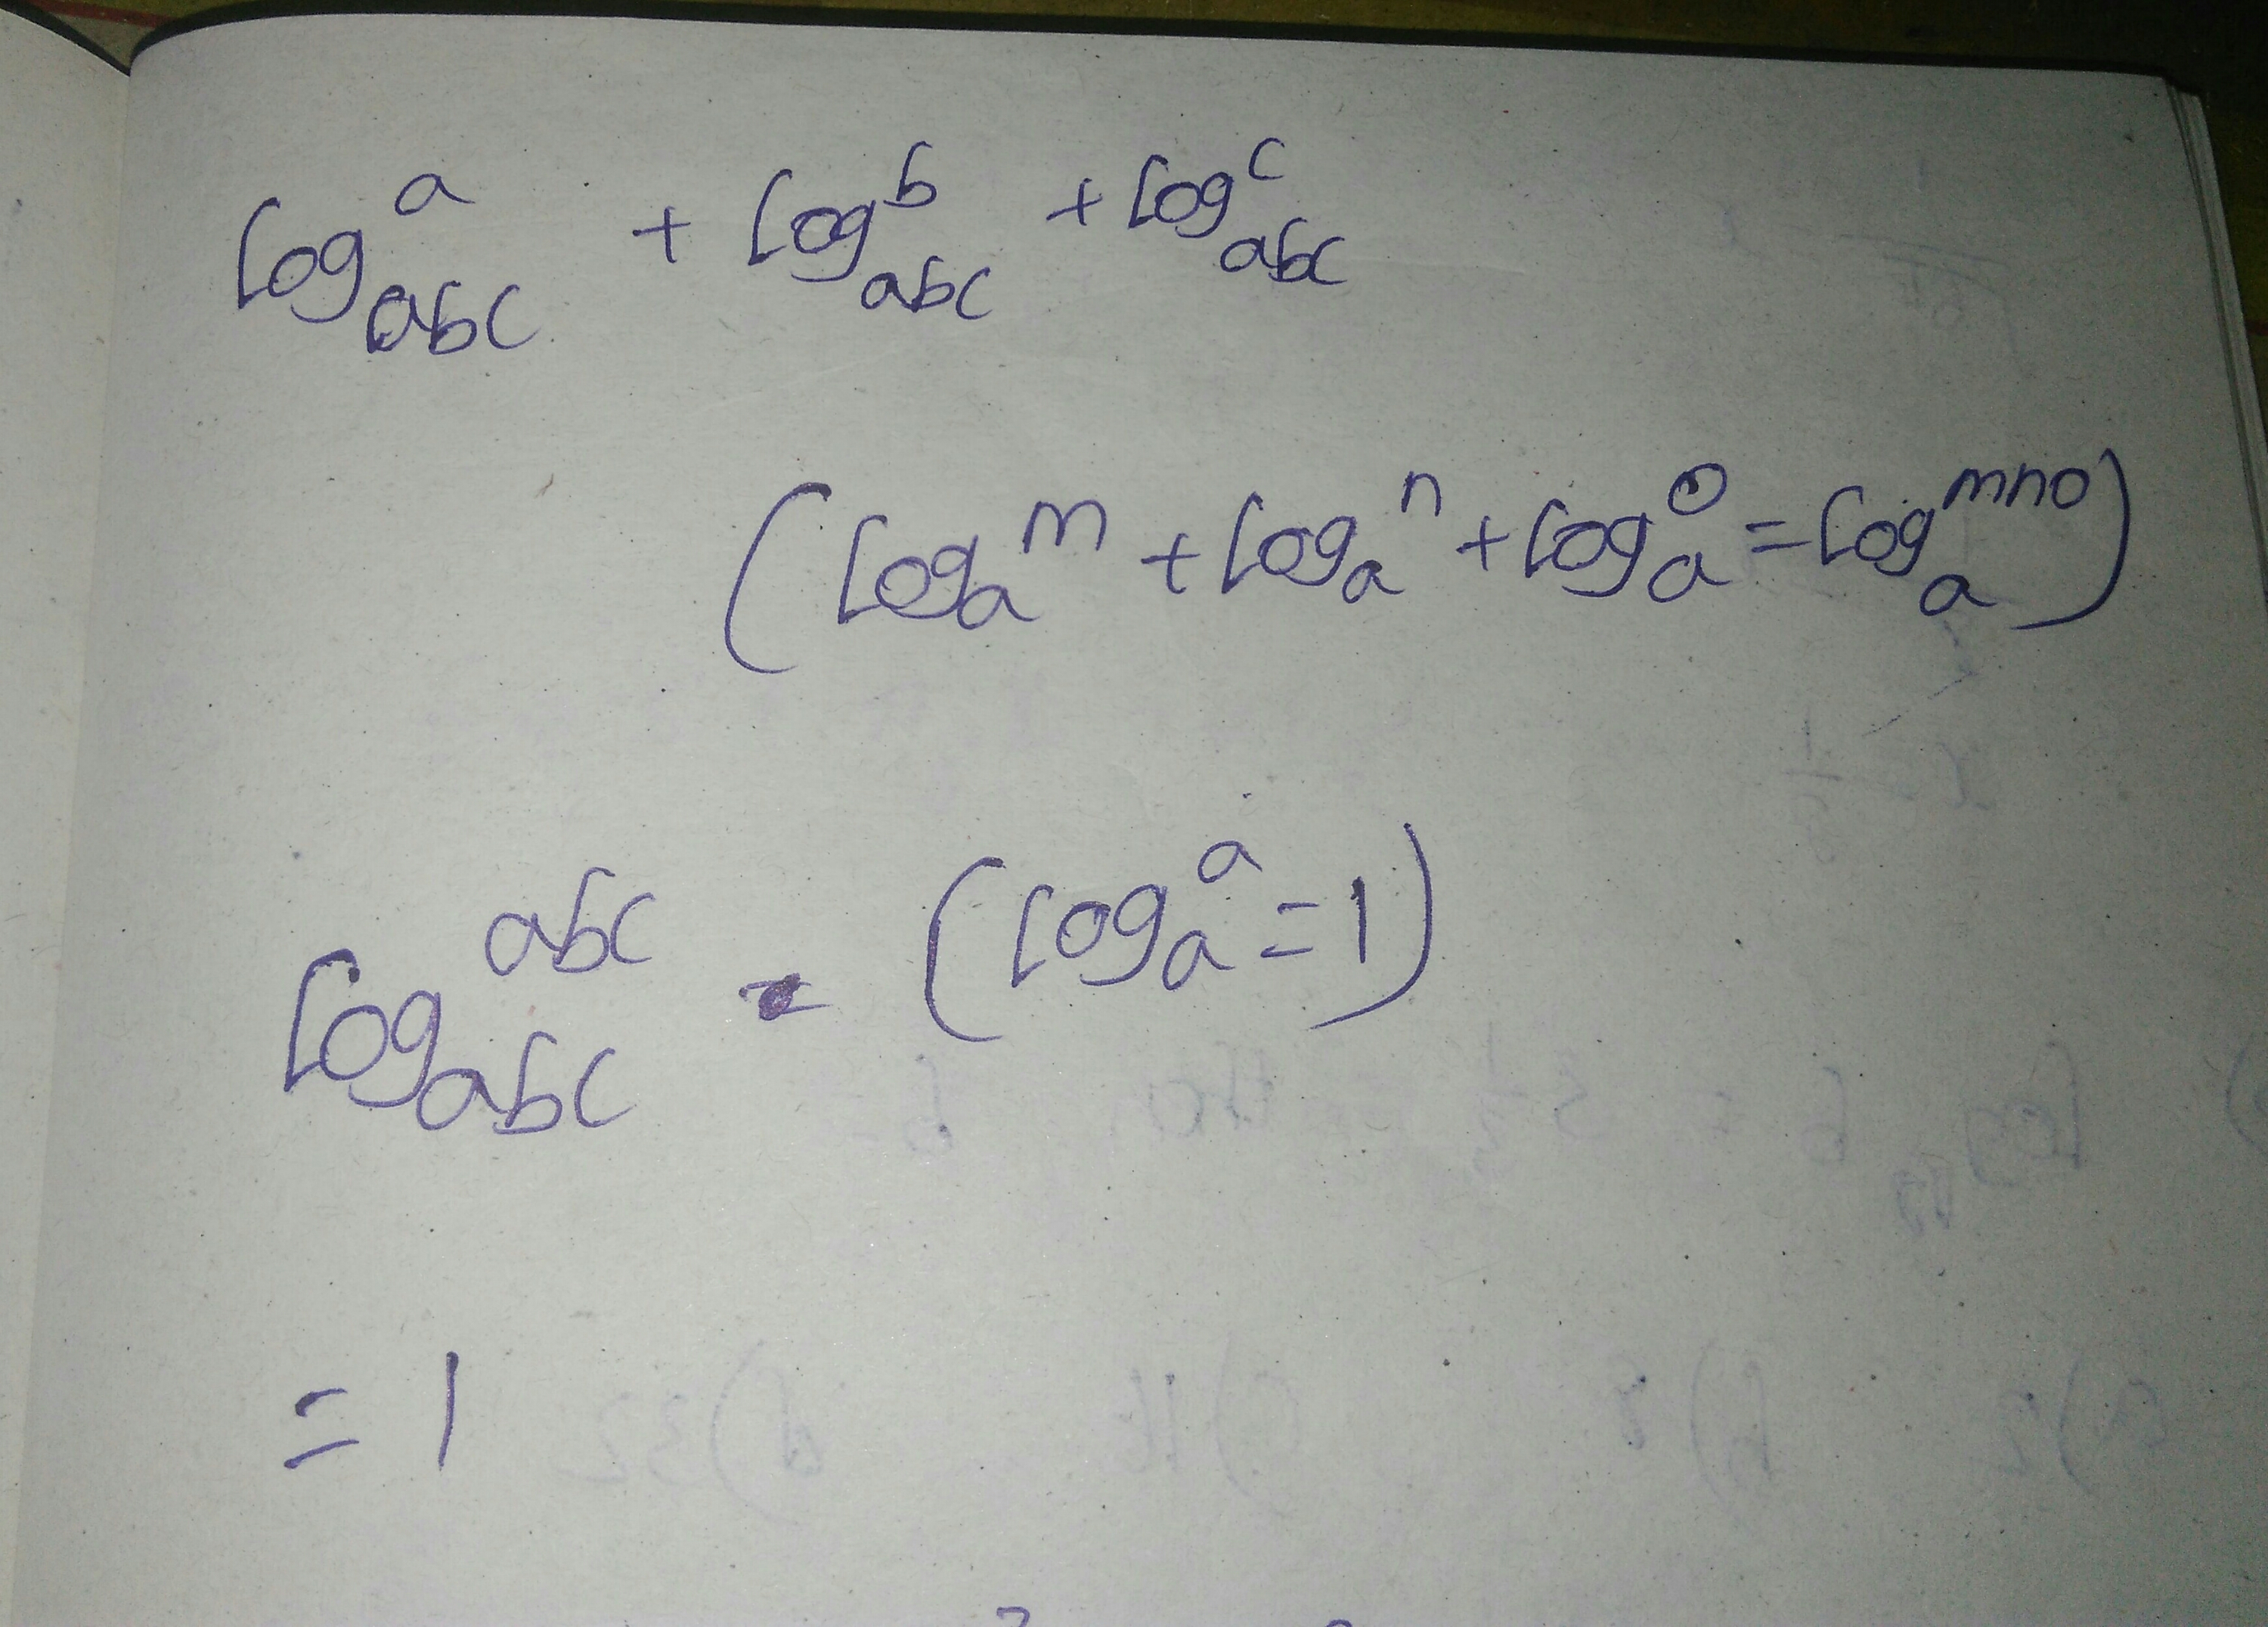 log_abc^a + log_abc^b + log_abc^c
(log_a^m + log_a^n + log_a^o = log_a^mno)
log_abc^abc = (log_a^a = 1)
= 1